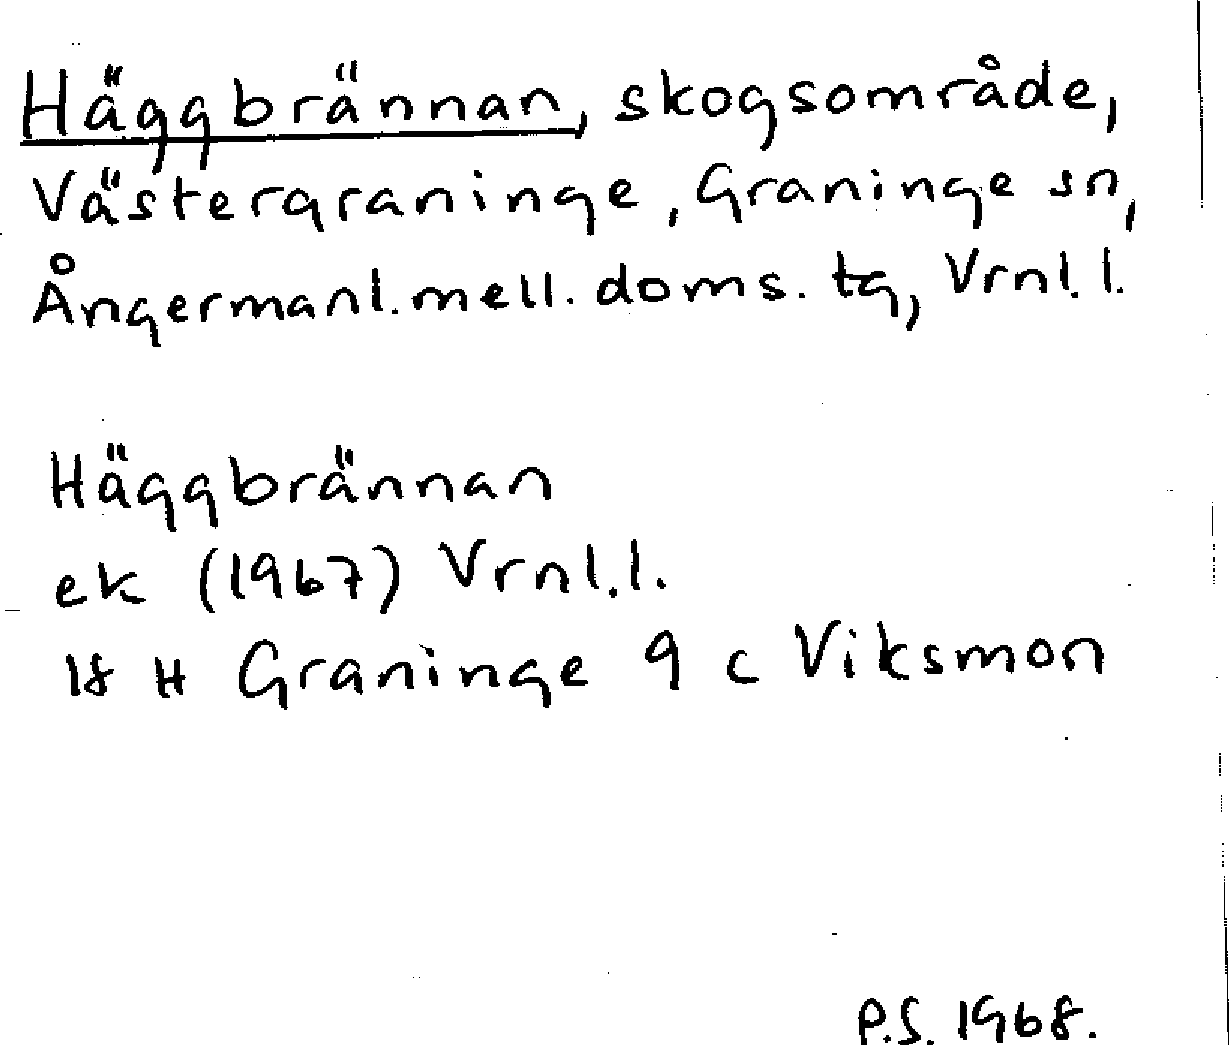 Häggbrännan, skogsområde,
Västergraninge, Graninge sn,
Ångermanl. mell. doms. tg, Vrnl. l.
Häggbrännan
ek (1967) Vrnl. l.
18 H Graninge 9 c Viksmon
P.S. 1968.